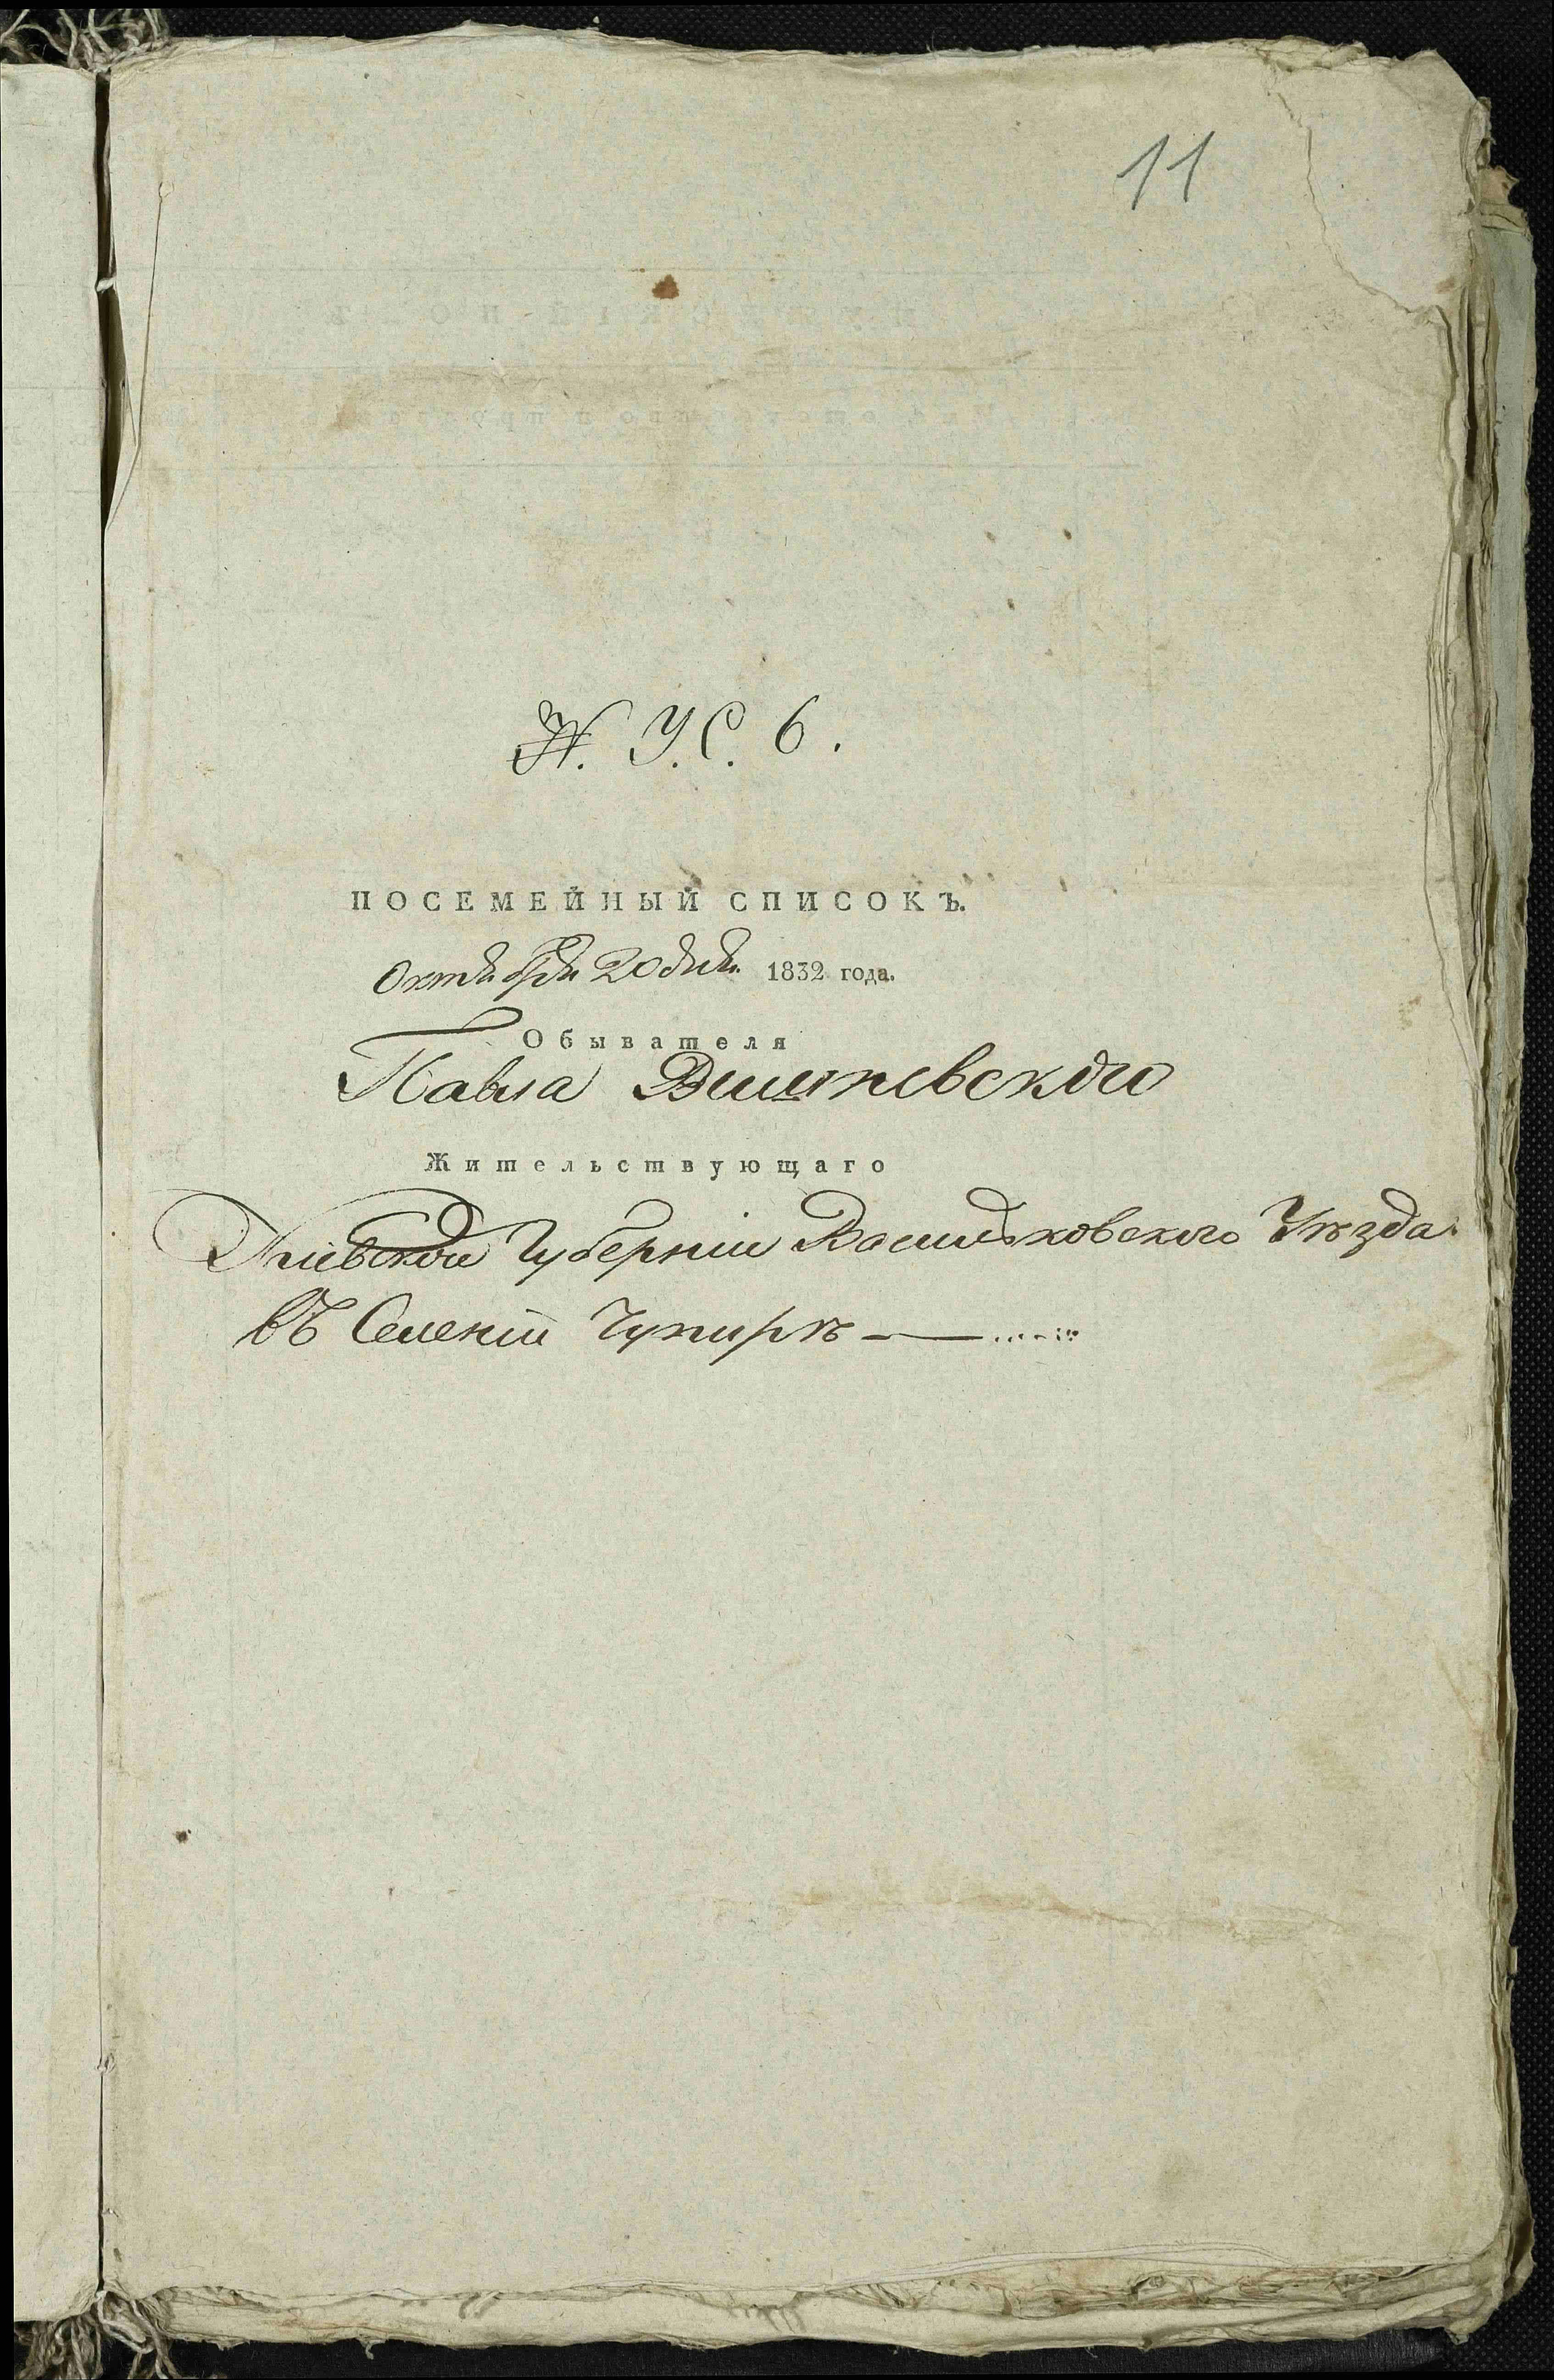 11
N. У. С. 6.
ПОСЕМЕЙНЫЙ СПИСОКЪ.
Октября 20 дня 1832 года.
Обывателя
Павла Вишневского
Жительствующаго
Кіевской Губерніи Васильковского Уѣзда
въ Селеніи Чупирѣ